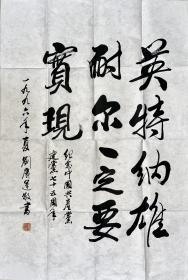 英特纳雄
耐尔一定要
實現
纪念中國共產黨
建黨七十五周年
一九九六年夏 劉廣運敬書